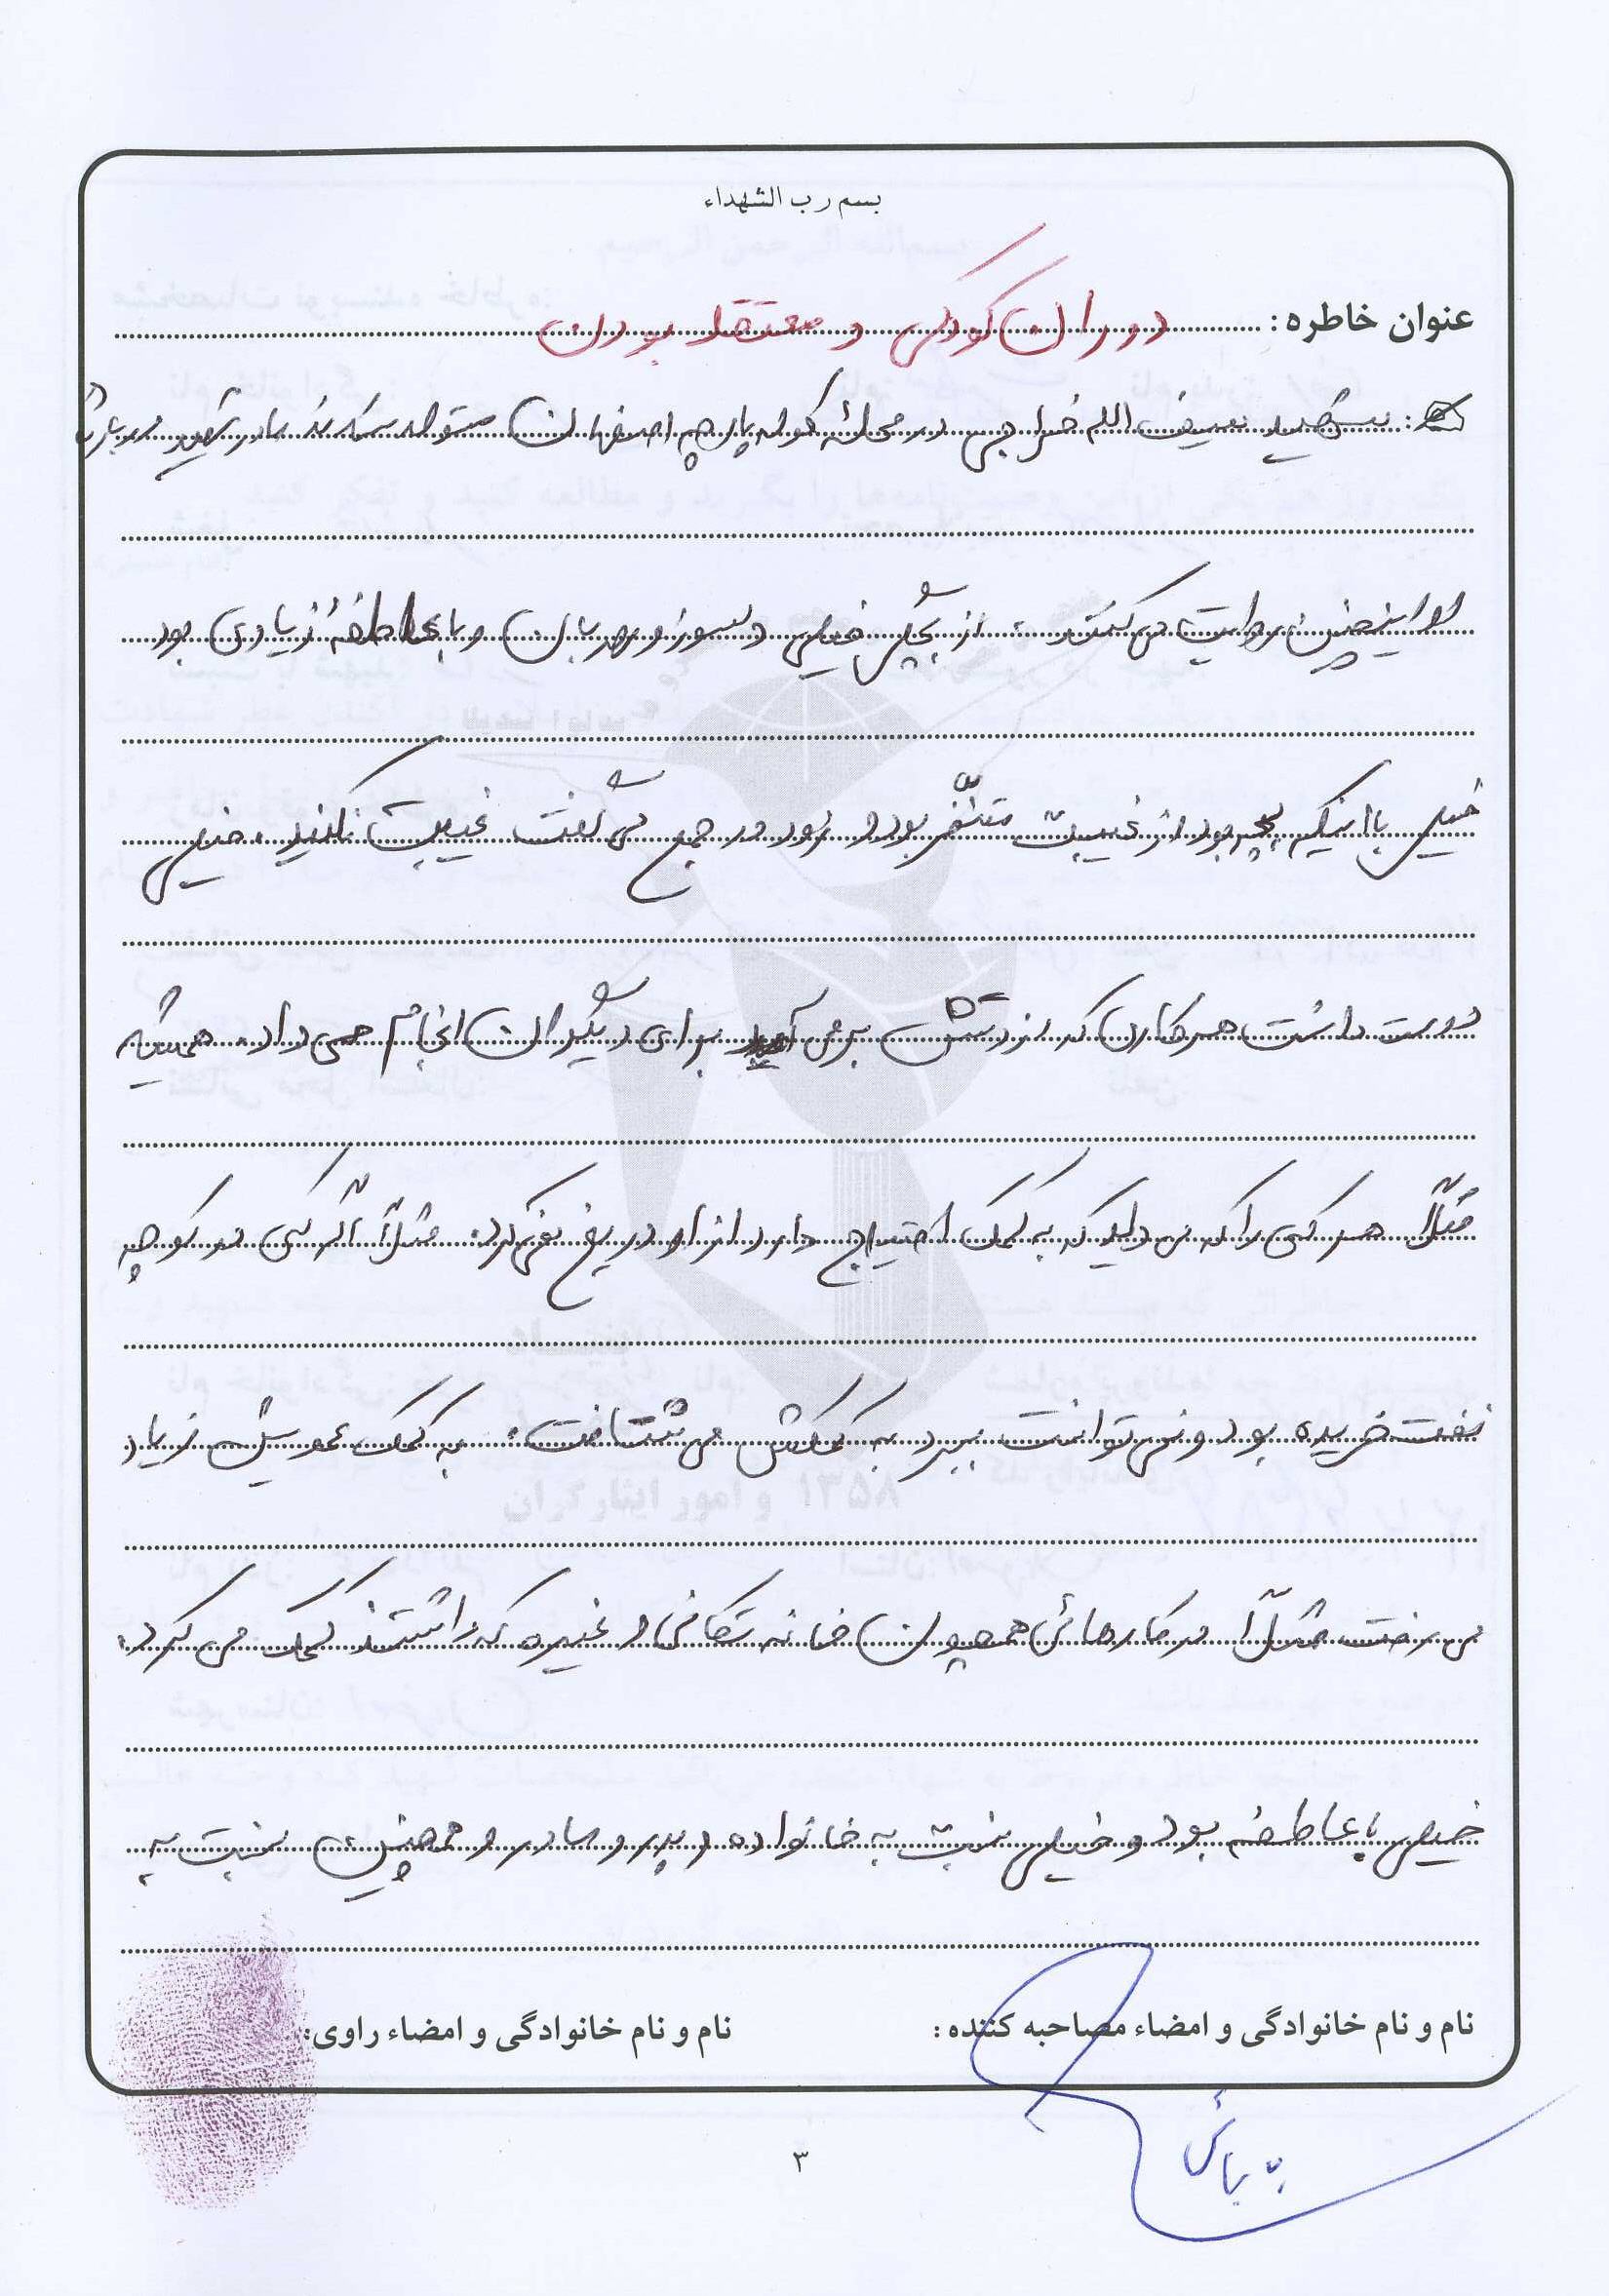 بسم رب الشهداء
عنوان خاطره : دوران کودکی و معتقد بودن
شهید سیف الله خراجی در محله کوله پارچه اصفهان متولد شدند مادر شهید درباره
او اینچنین روایت می کنند . از بچگی خیلی دلسوز و مهربان و با عاطفه زیادی بود
خیلی با اینکه بچه بود از غیبت متنفر بود و زود در جمع می گفت غیبت نکنید ، خیلی
دوست داشت هر کاری که از دستش بر می آمد برای دیگران انجام می داد . همیشه
مثلاً هر کسی را که می دید که به کمک احتیاج دارد از او دریغ نمی کرد . مثلاً اگر کسی در کوچه
نفت خریده بود و نمی توانست ببرد به کمکش می شتافت . به کمک عمویش زیاد
می رفت مثلاً در کارهائی همچون خانه تکانی و غیره که داشتند کمک می کرد .
خیلی با عاطفه بود و خیلی نسبت به خانواده و پدر و مادر و همچنین نسبت به
نام و نام خانوادگی و امضاء مصاحبه کننده :
نام و نام خانوادگی و امضاء راوی :
۳